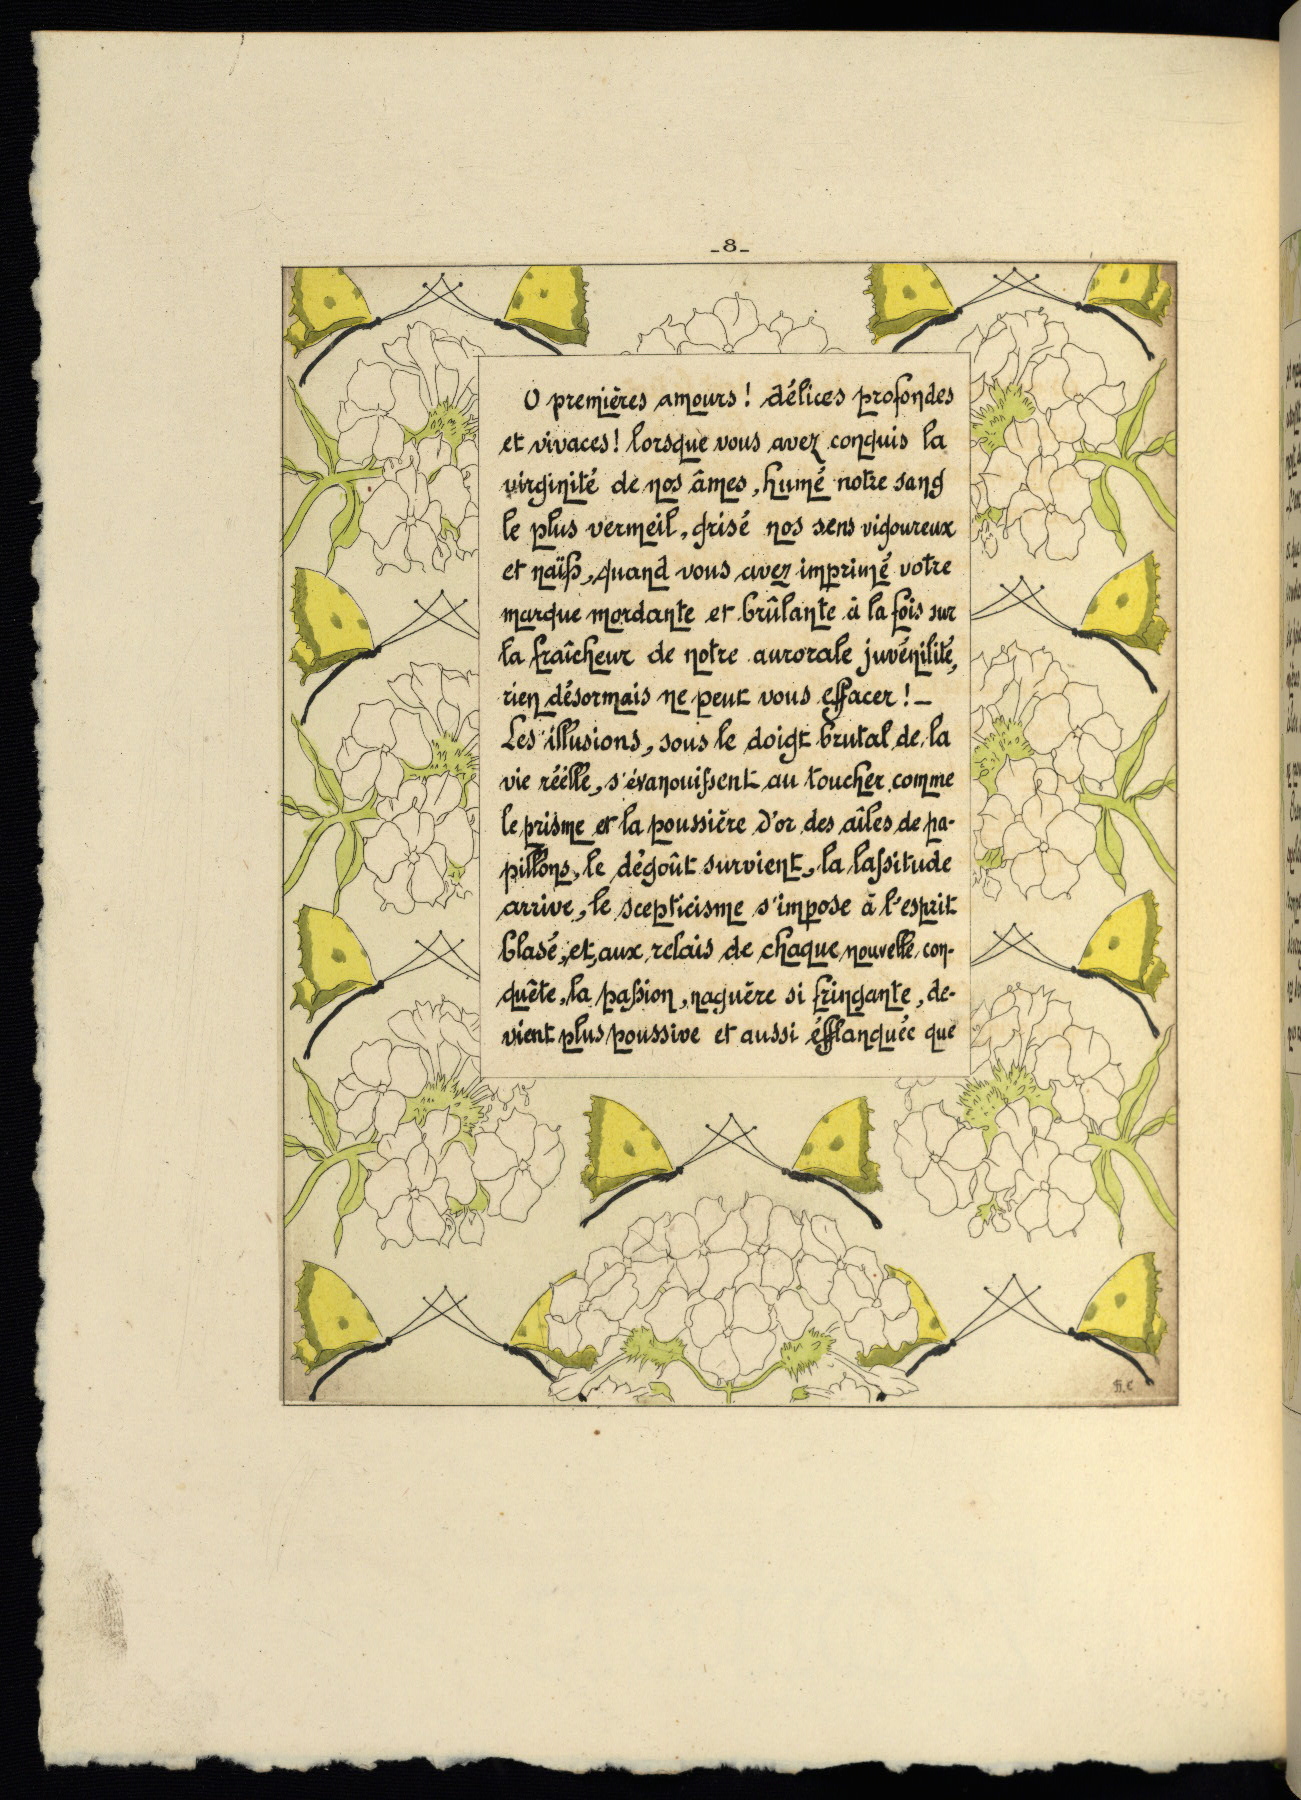 _8_
O premières amours ! délices profondes
et vivaces ! lorsque vous avez conquis la
virginité de nos âmes, humé notre sang
le plus vermeil, grisé nos sens vigoureux
et naïfs, quand vous avez imprimé votre
marque mordante et brûlante à la fois sur
la fraîcheur de notre aurorale juvénilité,
rien désormais ne peut vous effacer ! _
Les illusions, sous le doigt brutal de la
vie réélle, s'évanouissent au toucher comme
le prisme et la poussière d'or des aîles de pa-
pillons, le dégoût survient, la lassitude
arrive, le scepticisme s'impose à l'esprit
blasé, et, aux relais de chaque nouvelle con-
quête, la passion, naguère si fringante, de-
vient plus poussive et aussi éfflanquée que